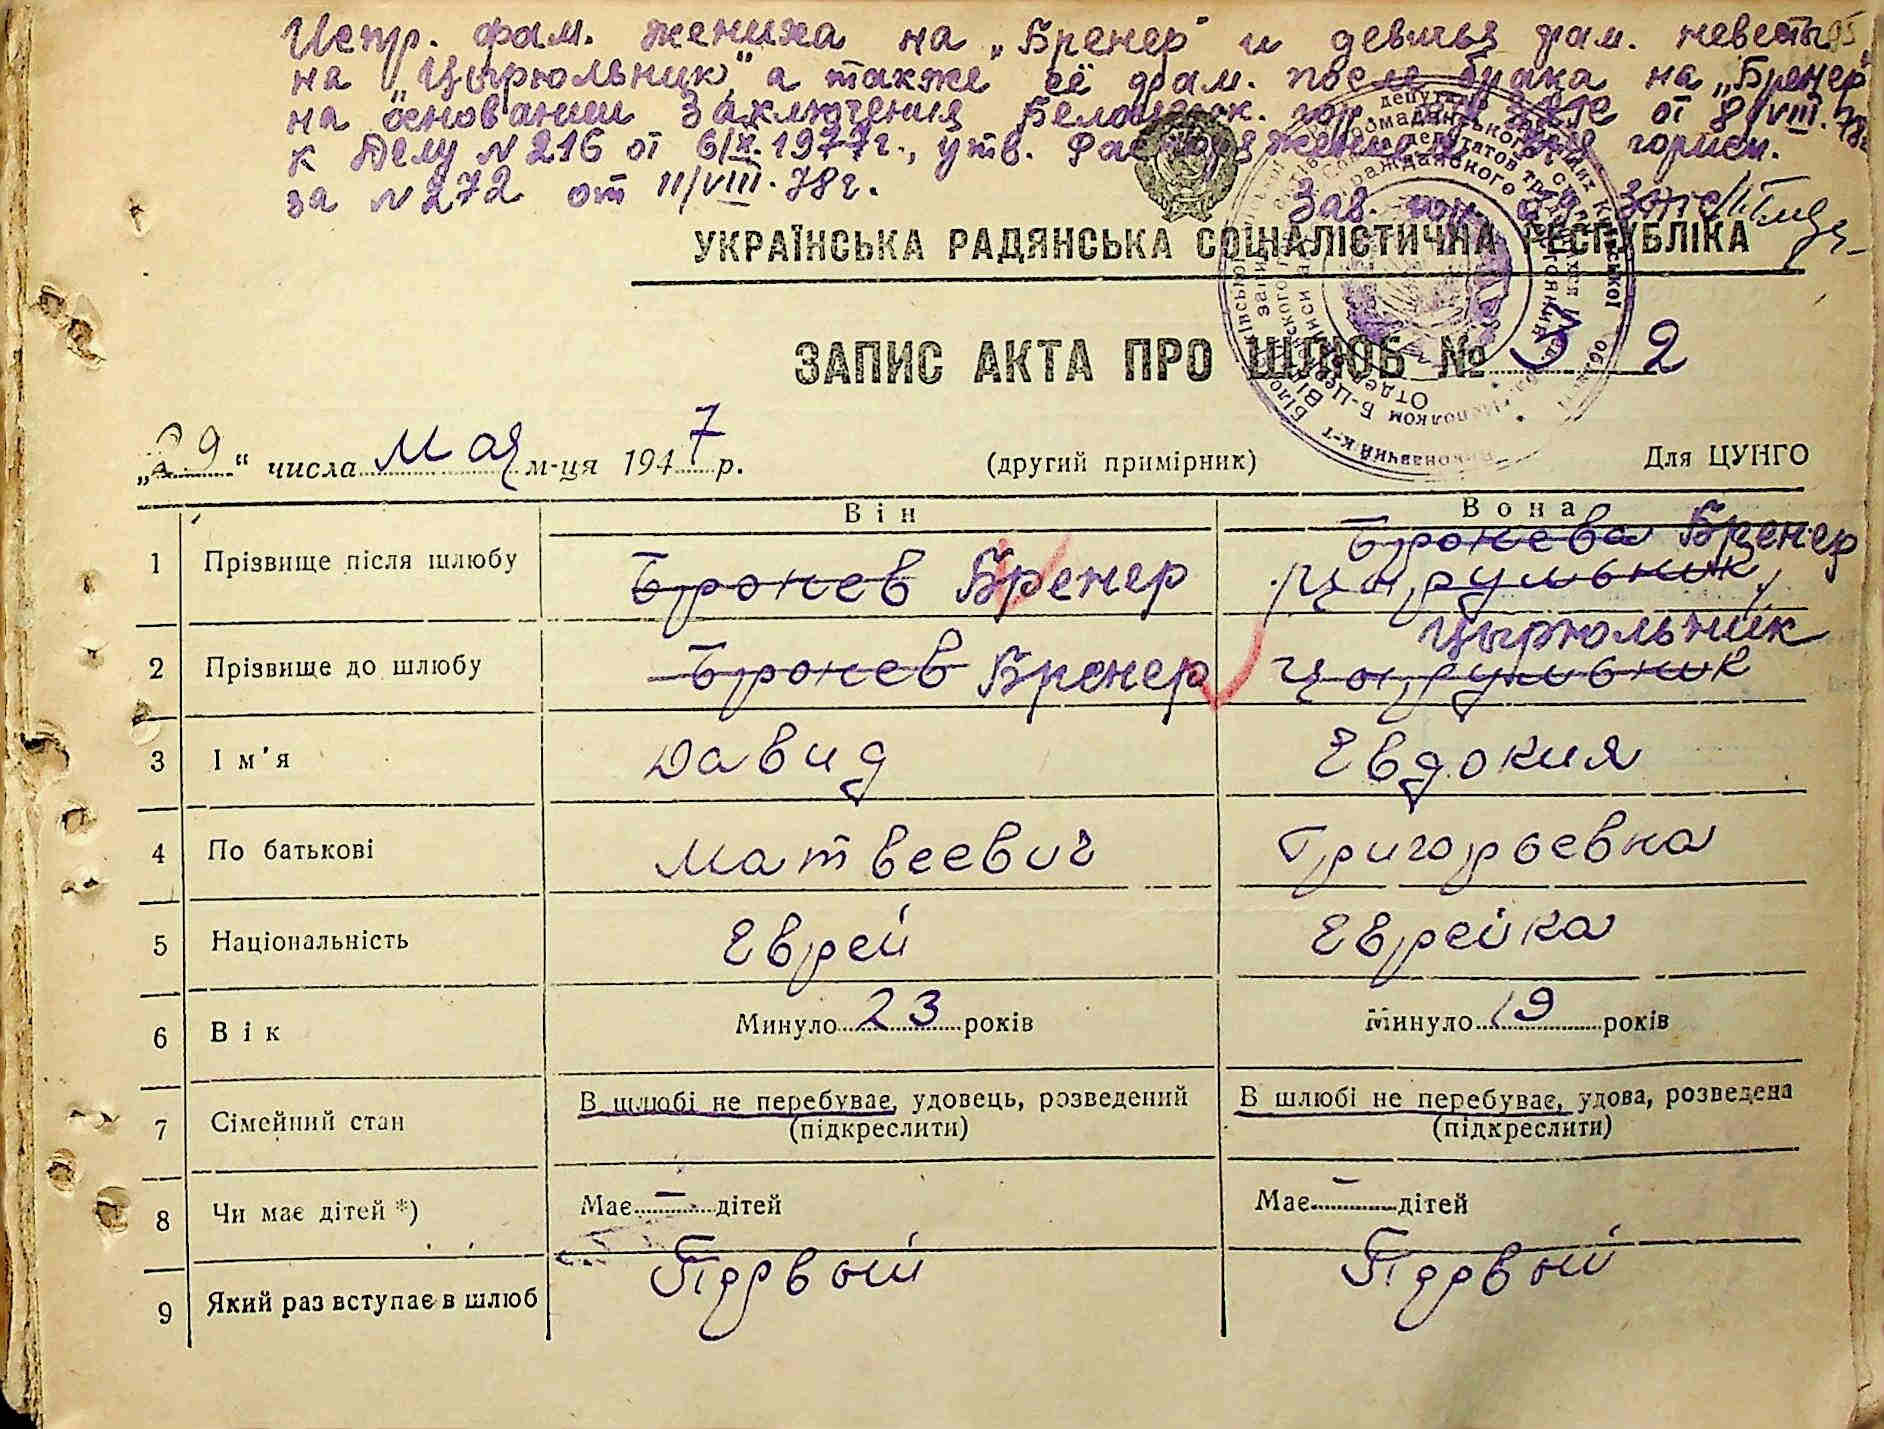 Испр. фам. жениха на „Бренер" и девичья фам. невесты
на „Цырюльник", а также её фам. после брака на „Бренер"
на основании заключения Белоцерк. гор. от 8/VIII.78г.
к делу N 216 от 6/X.1977г., утв. горисп.
за N 272 от 11/VIII.78г.
Зав. загс
УКРАЇНСЬКА РАДЯНСЬКА СОЦІАЛІСТИЧНА РЕСПУБЛІКА
ЗАПИС АКТА ПРО ШЛЮБ № 32
„29" числа Мая м-ця 1947 р. (другий примірник) Для ЦУНГО
Він Вона
Бронева Бренер
1 Прізвище після шлюбу Бронев Бренер
Цырюльник
2 Прізвище до шлюбу Бронев Бренер
3 Ім'я Давид Евдокия
4 По батькові Матвеевич Григорьевна
5 Національність Еврей Еврейка
6 Вік Минуло 23 років Минуло 19 років
7 Сімейний стан В шлюбі не перебуває, удовець, розведений В шлюбі не перебуває, удова, розведена
(підкреслити) (підкреслити)
8 Чи має дітей *) Має — дітей Має — дітей
9 Який раз вступає в шлюб Первый Первый